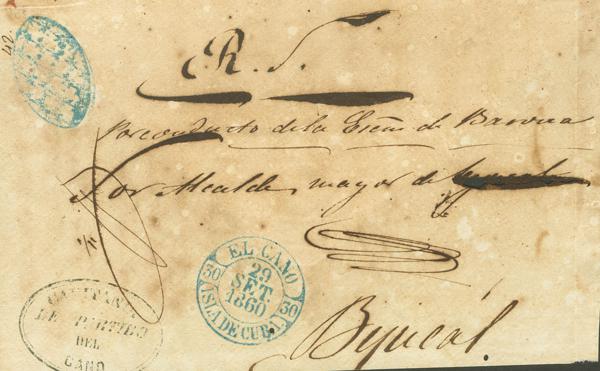 42.
R. S.
Por conducto de la Escñia de Barona
Sor Alcalde mayor de
EL CANO
30 29 SET. 1860 30
ISLA DE CUBA
CAPITANIA
DE PARTIDO
DEL
CANO
Bejucál.